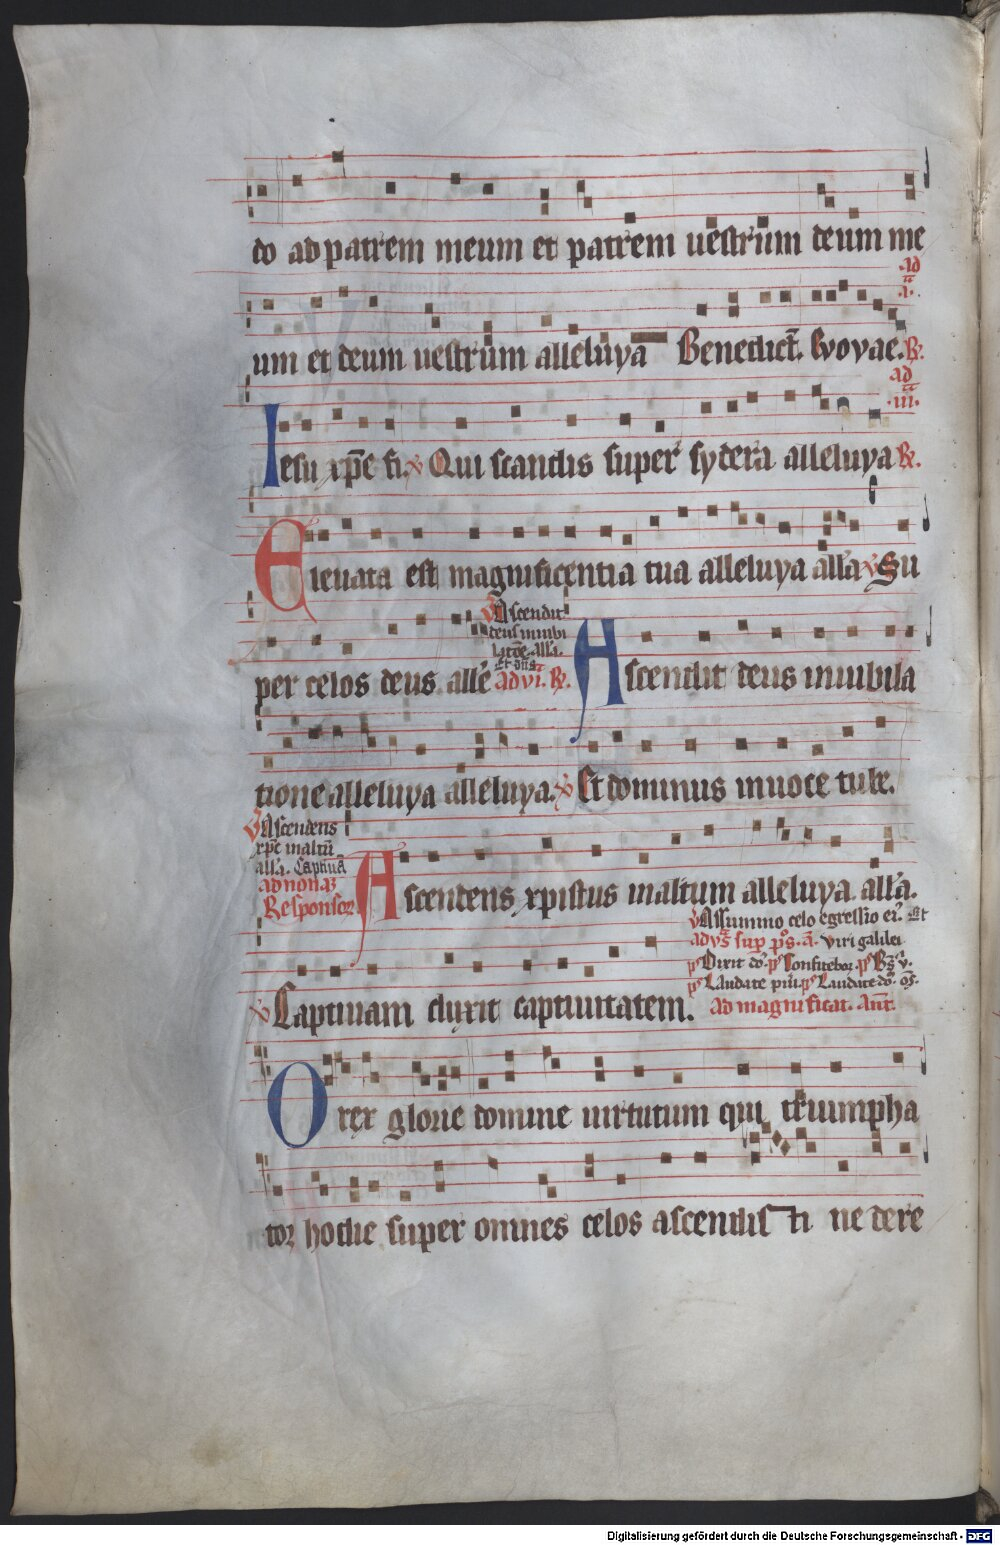 do ad patrem meum et patrem uestrum deum me
ad
.i.
um et deum uestrum alleluya Benedict̄. Evovae. R̷.
ad
.iii.
Iesu xp̄e fi. v̷ Qui scandis super sydera alleluya R̷.
Eleuata est magnificentia tua alleluya all'a v̷ Su
v̷ Ascendit
deus in iubi
latōe. all'a.
Et dn̄s
per celos deus alle' ad vi. R̷. Ascendit deus in iubila
tione alleluya alleluya. v̷ Et dominus in uoce tube.
v̷ Ascendens
xp̄c in altū
all'a. Captiuā
ad nonaꝫ
Responsoꝝ
Ascendens xpistus in altum alleluya. all'a.
v̷ A summo celo egressio ei'. Et
ad vs̄ sup ps̄. a̅. Viri galilei
ps̄ Dixit do'. ps̄ Confitebor. ps̄
ps̄ Laudate ps̄ Laudate do'. om̄s.
v̷ Captiuam duxit captiuitatem. ad magnificat. Ant̄.
O rex glorie domine uirtutum qui triumpha
toꝛ hodie super omnes celos ascendisti ne dere
Digitalisierung gefördert durch die Deutsche Forschungsgemeinschaft - DFG